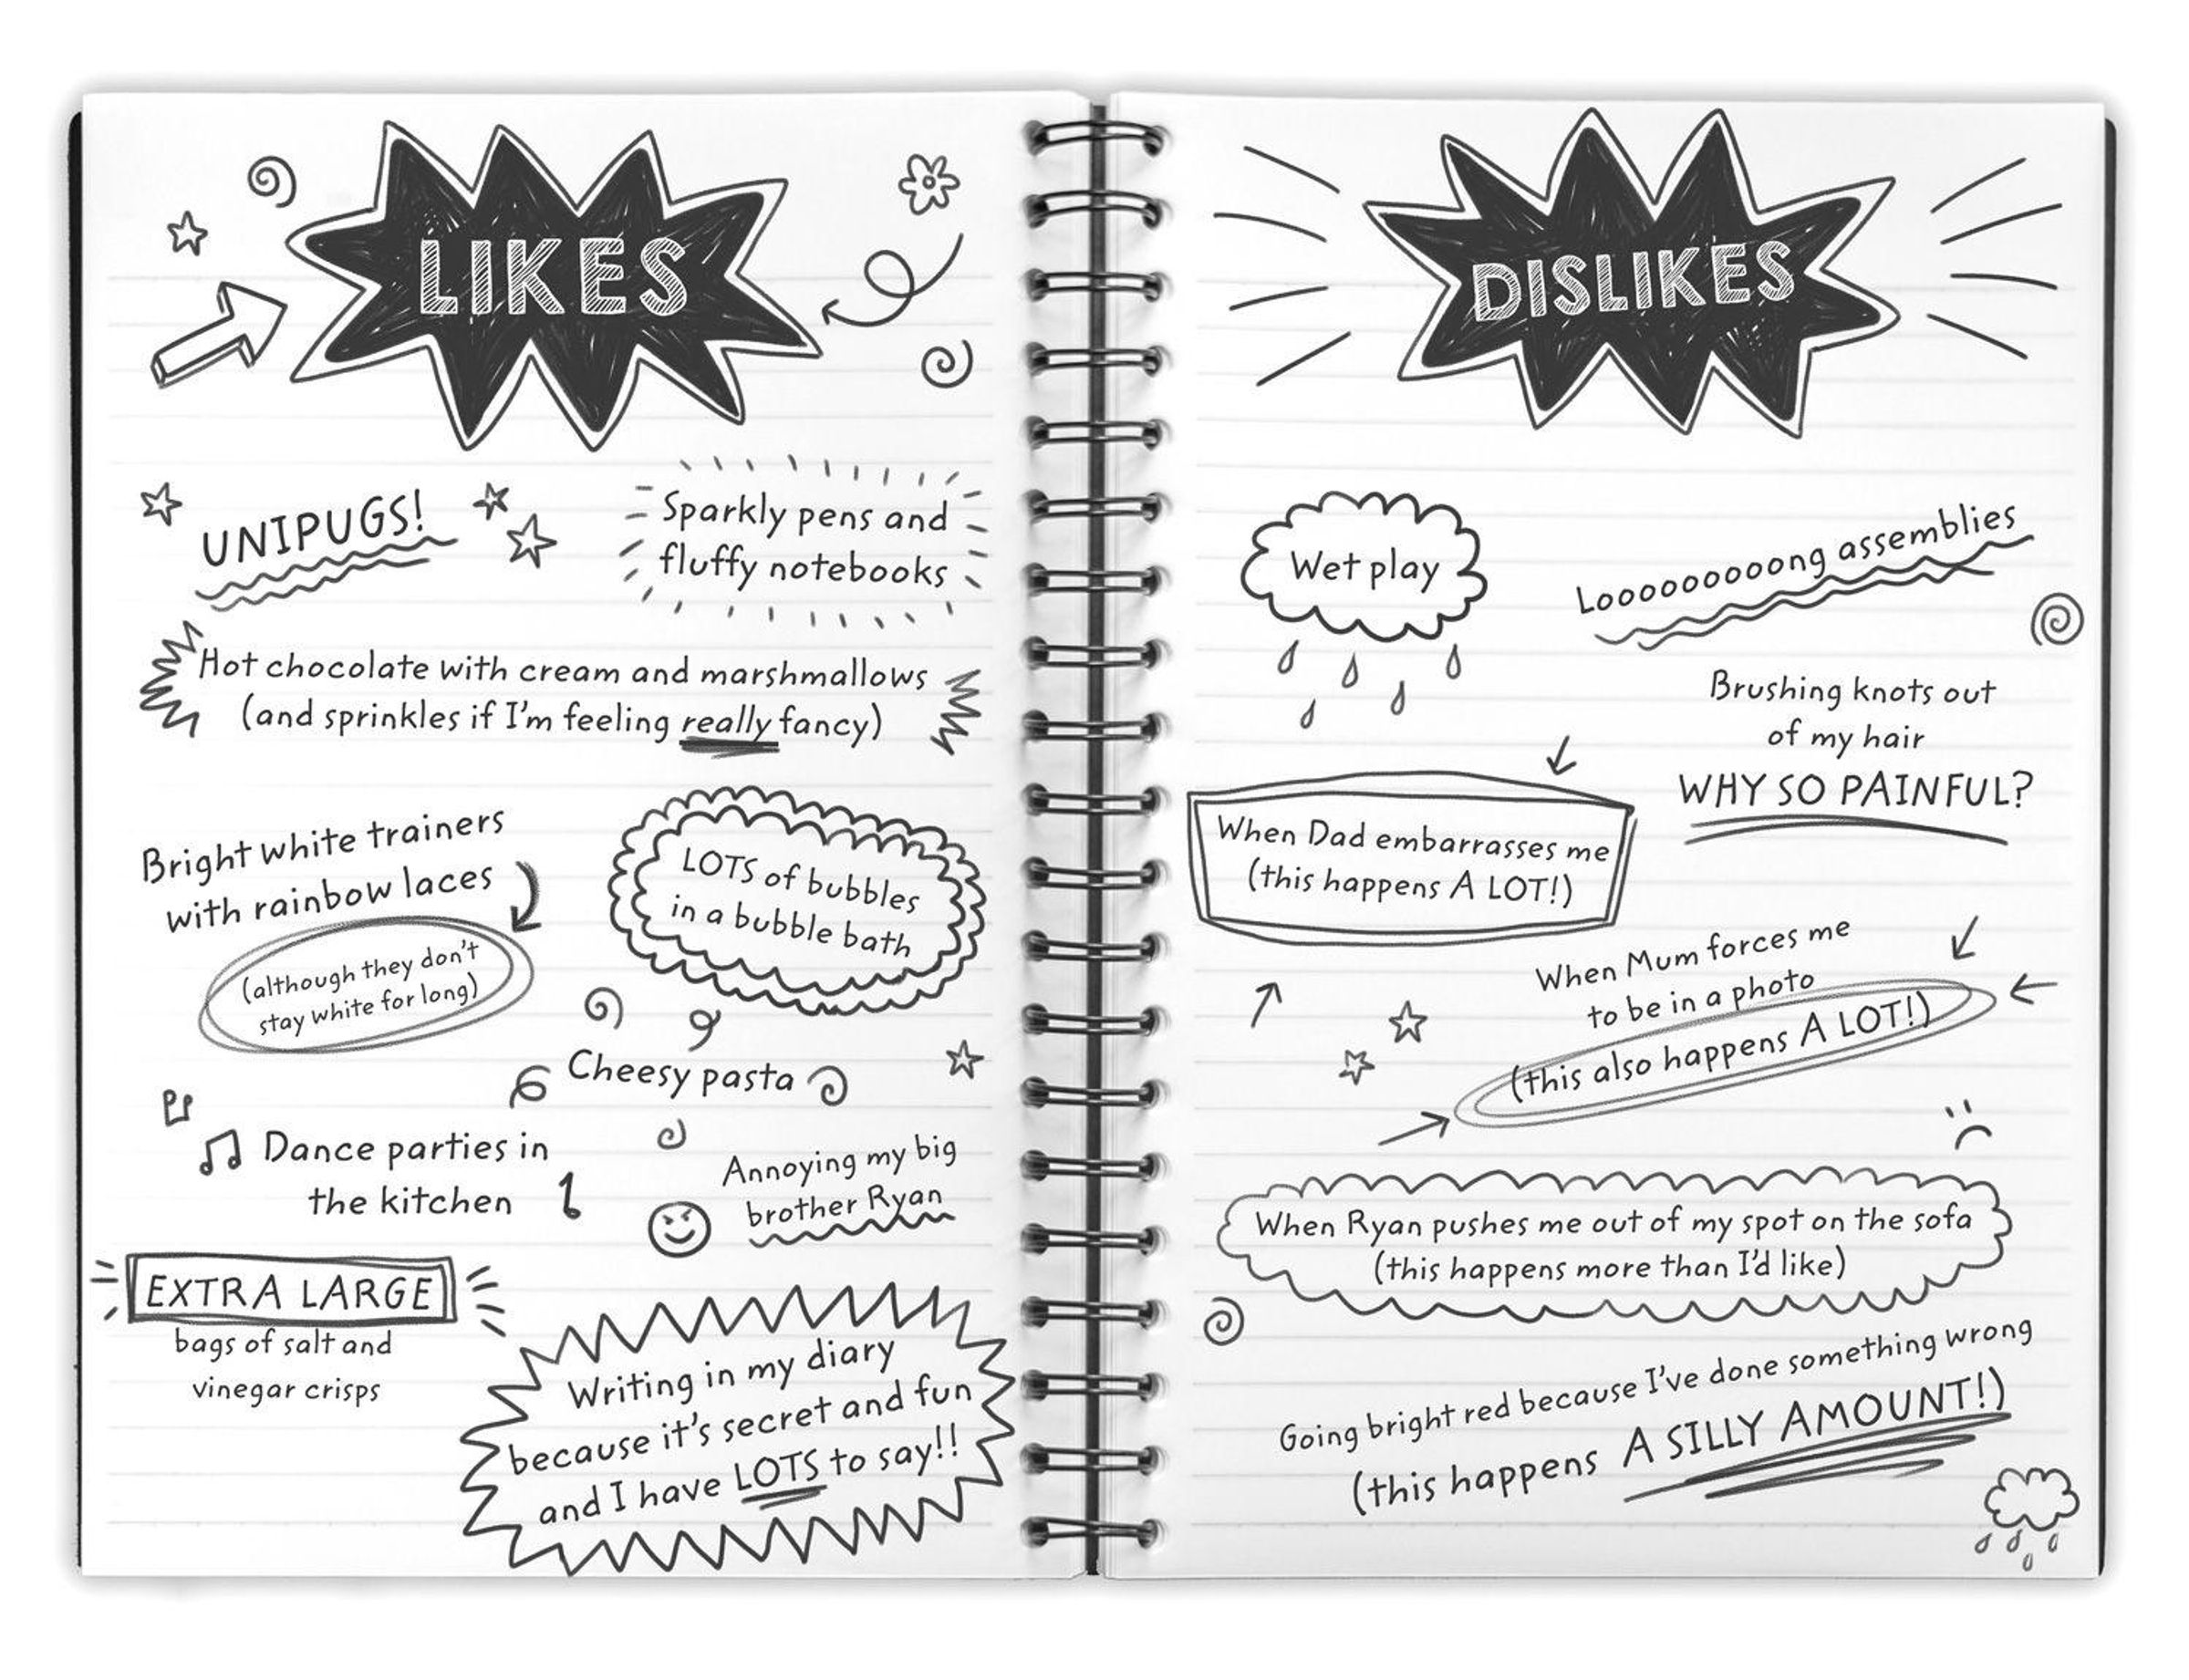 LIKES
UNIPUGS!
Sparkly pens and
fluffy notebooks
Hot chocolate with cream and marshmallows
(and sprinkles if I'm feeling really fancy)
Bright white trainers
with rainbow laces
(although they don't
stay white for long)
LOTS of bubbles
in a bubble bath
Cheesy pasta
Dance parties in
the kitchen
Annoying my big
brother Ryan
EXTRA LARGE
bags of salt and
vinegar crisps
Writing in my diary
because it's secret and fun
and I have LOTS to say!!
DISLIKES
Wet play
Looooooooong assemblies
Brushing knots out
of my hair
WHY SO PAINFUL?
When Dad embarrasses me
(this happens A LOT!)
When Mum forces me
to be in a photo
(this also happens A LOT!)
When Ryan pushes me out of my spot on the sofa
(this happens more than I'd like)
Going bright red because I've done something wrong
(this happens A SILLY AMOUNT!)